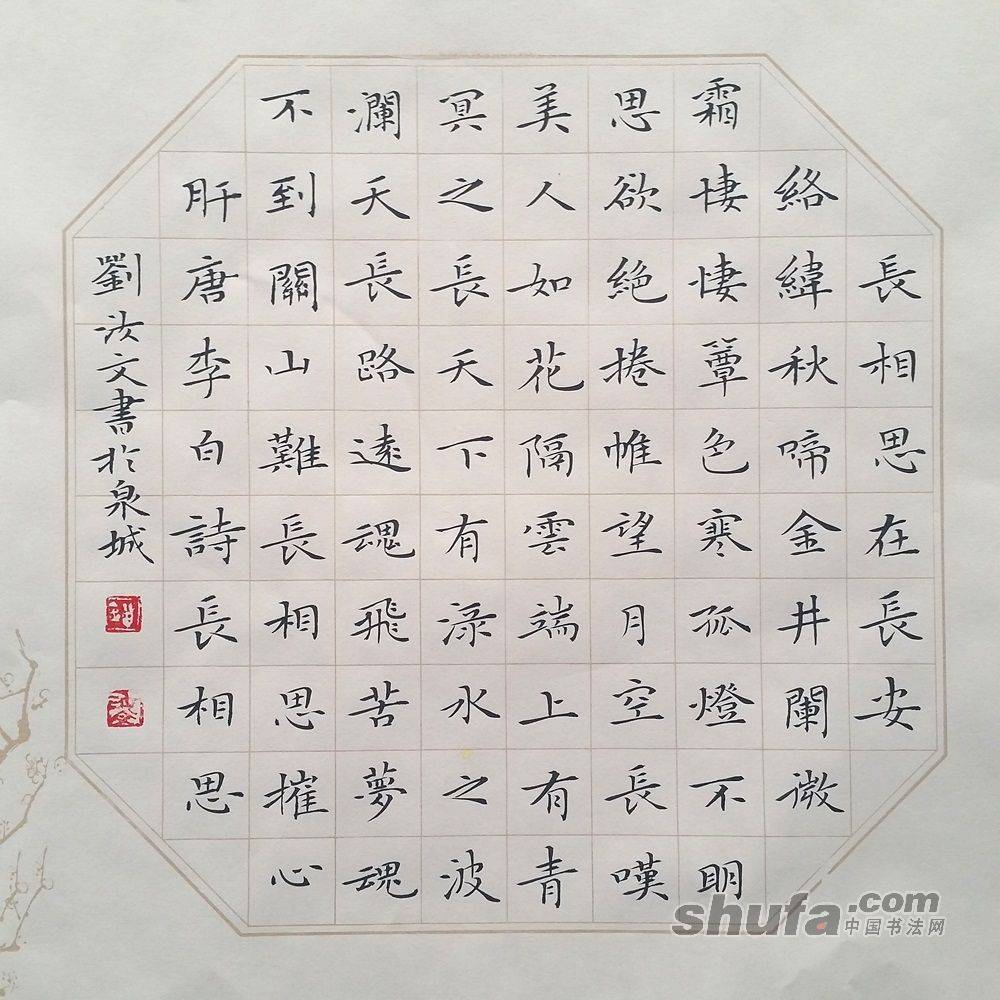 長相思在長安
絡緯秋啼金井闌微
霜悽悽簟色寒孤燈不明
思欲絶捲帷望月空長嘆
美人如花隔雲端上有青
冥之長天下有淥水之波
瀾天長路遠魂飛苦夢魂
不到關山難長相思摧心
肝唐李白詩長相思
劉汝文書於泉城
shufa.com
中国书法网